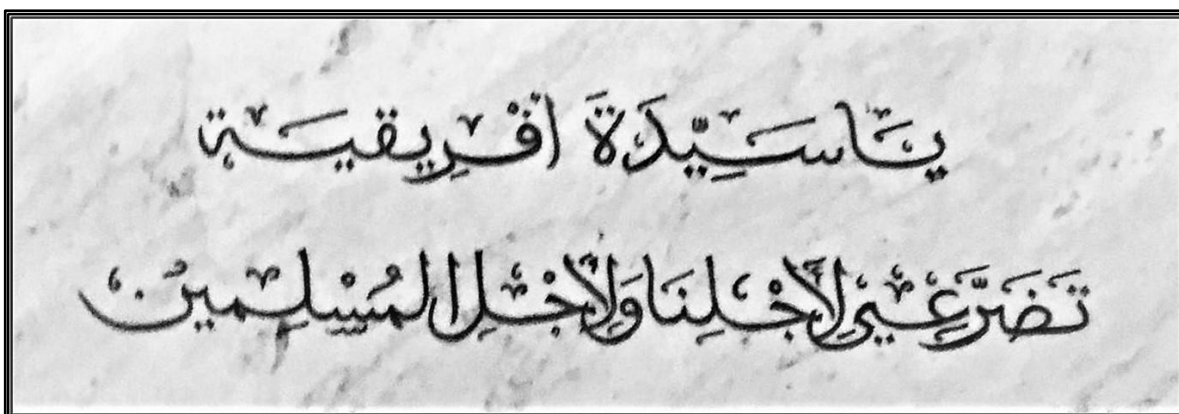 يَا سَيِّدَةَ افْرِيقيَة
تَضَرَّعِي لأَجْلِنَا وَلأَجْلِ المُسْلِمينْ